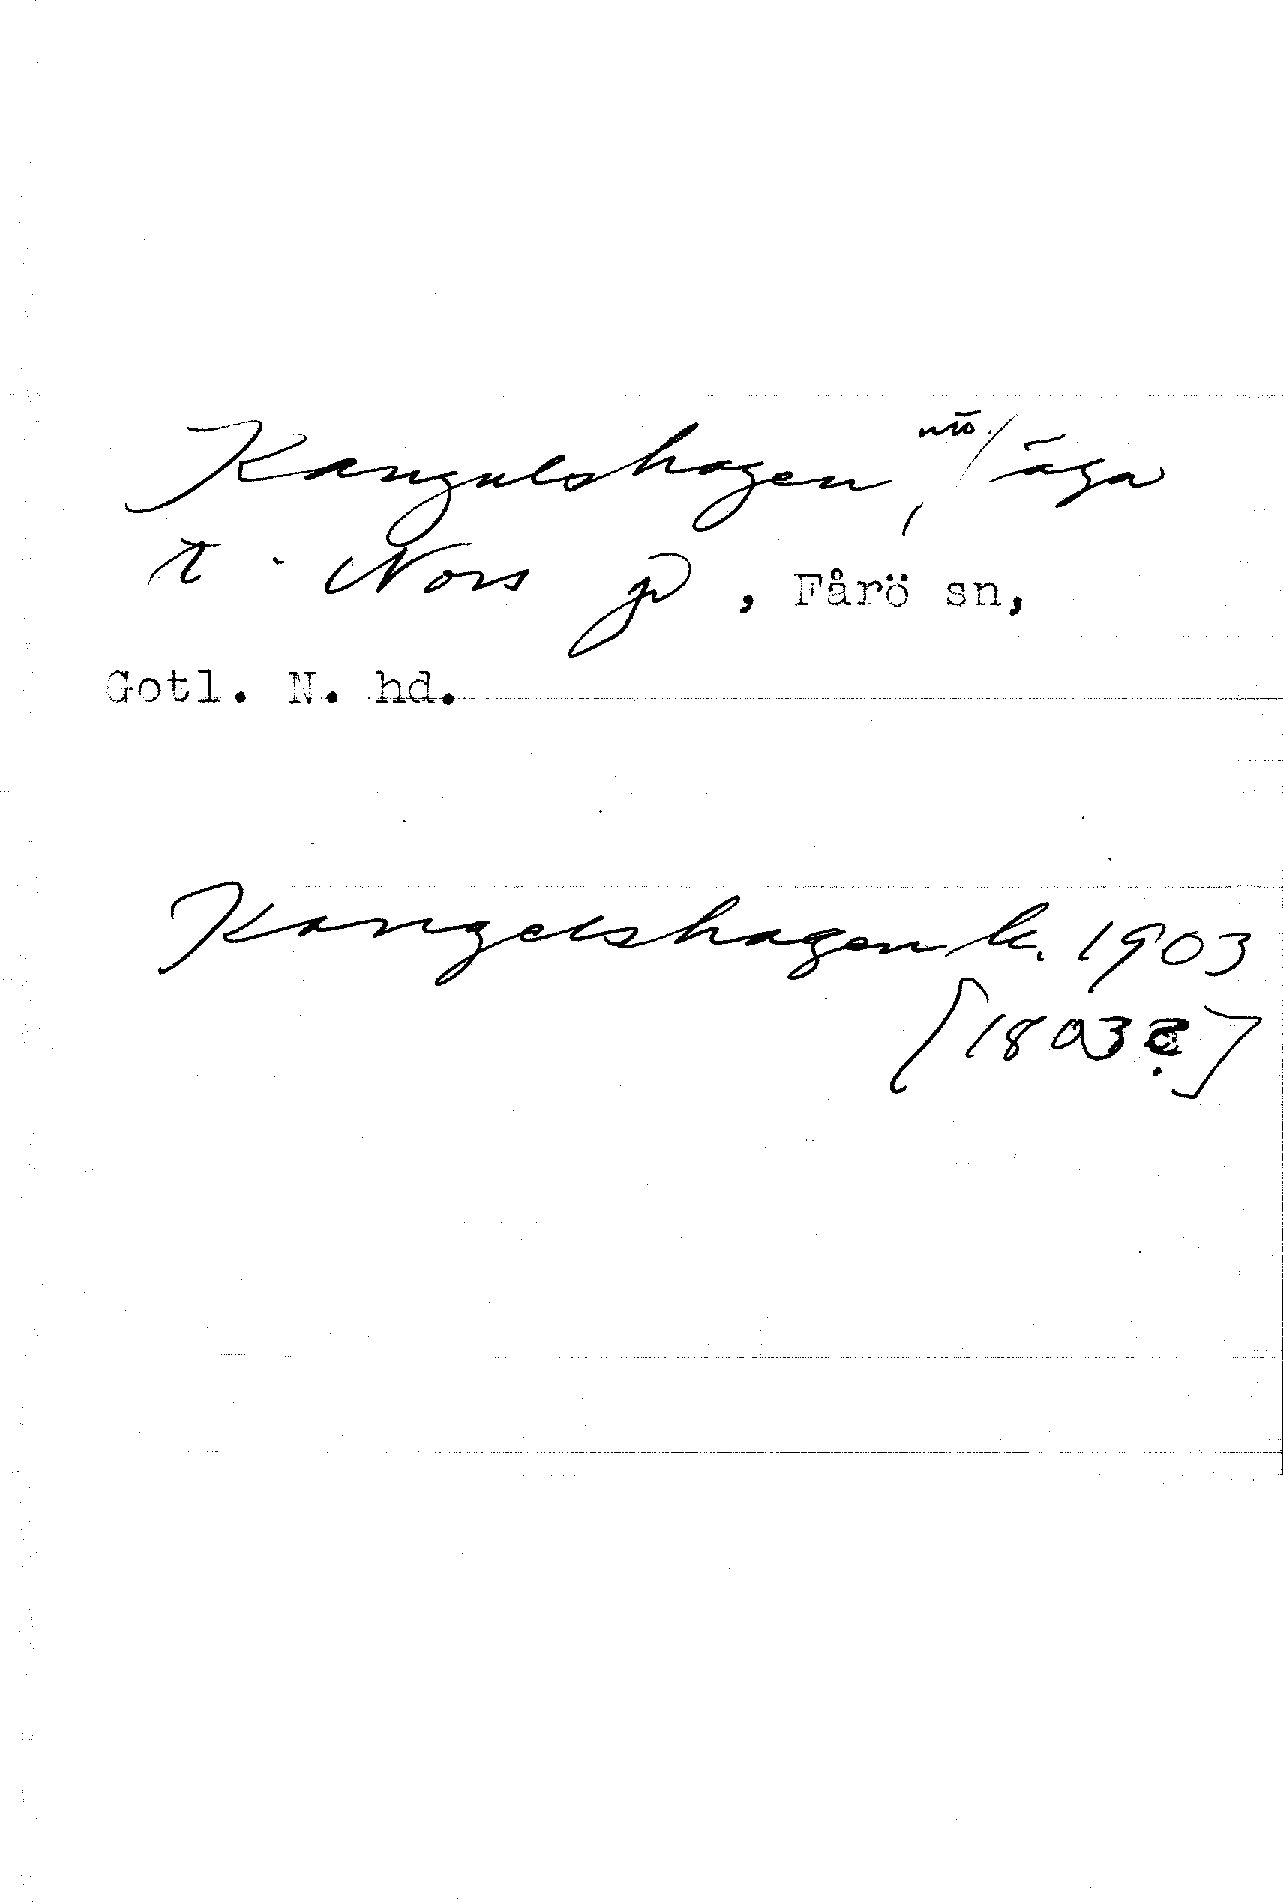 Kangulshagen, äga
t. Nors gd, Fårö sn,
Gotl. N. hd.
Kangelshagen k. 1903
[1803?]